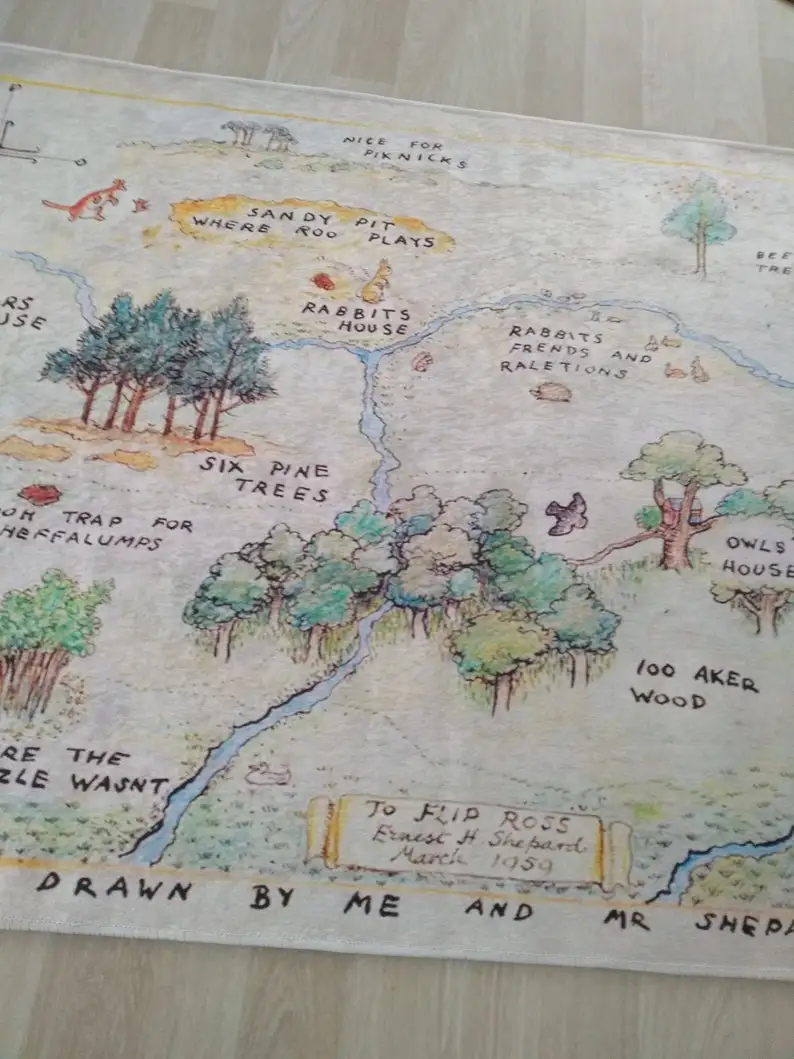 NICE FOR
PIKNICKS
SANDY PIT
WHERE ROO PLAYS
BEE
TRE
RABBITS
HOUSE
RS
USE
RABBITS
FRENDS AND
RALETIONS
SIX PINE
TREES
OH TRAP FOR
HEFFALUMPS
OWLS
HOUSE
100 AKER
WOOD
RE THE
ZLE WASNT
TO FLIP ROSS
Ernest H. Shepard
March 1959
DRAWN BY ME AND MR SHEPA